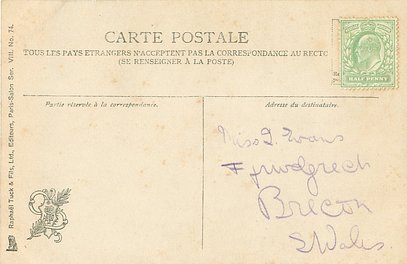 CARTE POSTALE
TOUS LES PAYS ETRANGERS N'ACCEPTENT PAS LA CORRESPONDANCE AU RECTO
(SE RENSEIGNER À LA POSTE)
Partie réservée à la correspondance.
Adresse du destinataire.
HALF PENNY
Raphaël Tuck & Fils, Ltd., Editeurs, Paris-Salon Ser. VIII. No. 74.
Miss J. Evans
Ffrwdgrech
Brecon
S Wales.